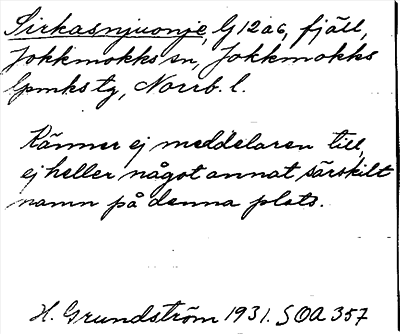 Sirkasnjuonje, G12a6, fjäll,
Jokkmokks sn, Jokkmokks
lpmks tg, Norrb. l.
Känner ej meddelaren till,
ej heller något annat särskilt
namn på denna plats.
H. Grundström 1931. SOA 357